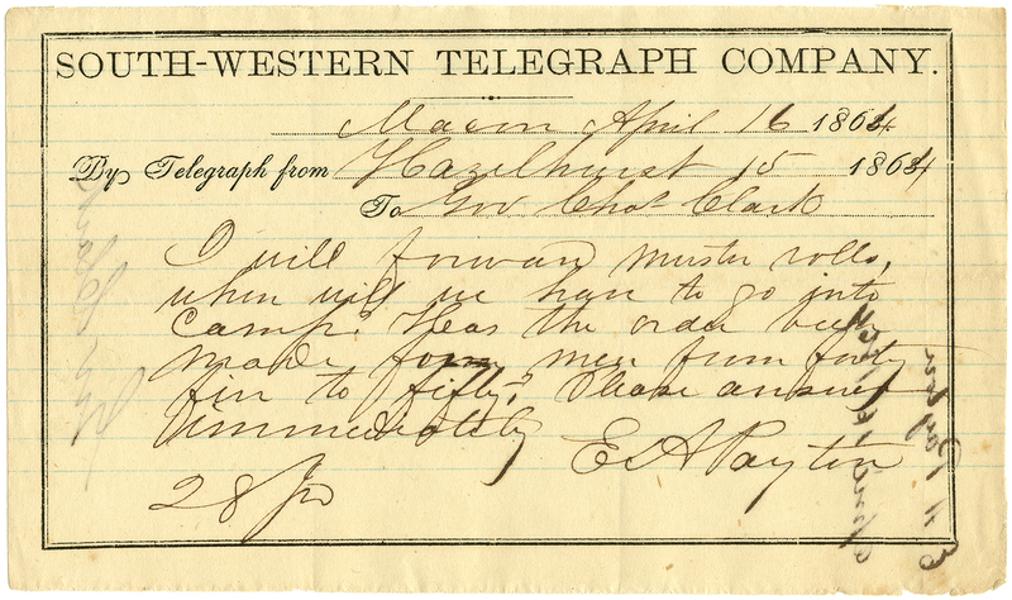 SOUTH-WESTERN TELEGRAPH COMPANY.
Macon April 16 1864
By Telegraph from Hazelhurst 15 1864
To Gov Chas Clark
I will forward muster rolls,
when will we have to go into
Camp? Has the order been
made for men from forty
five to fifty? Please answer
immediately
E A Payton
28